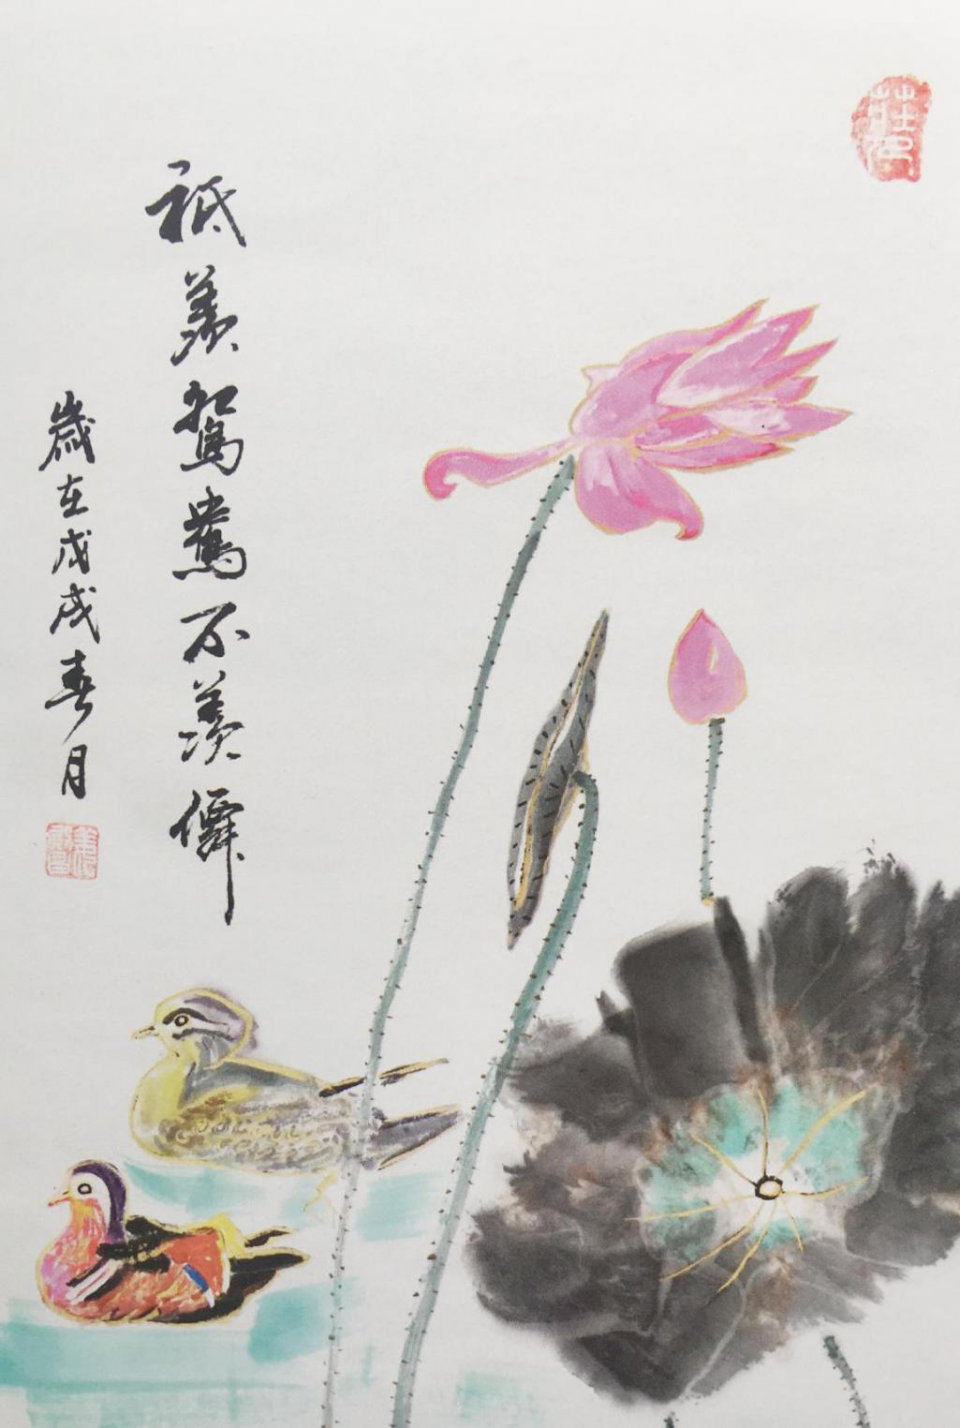 祗羨鴛鴦不羨僊
歲在戊戌春月